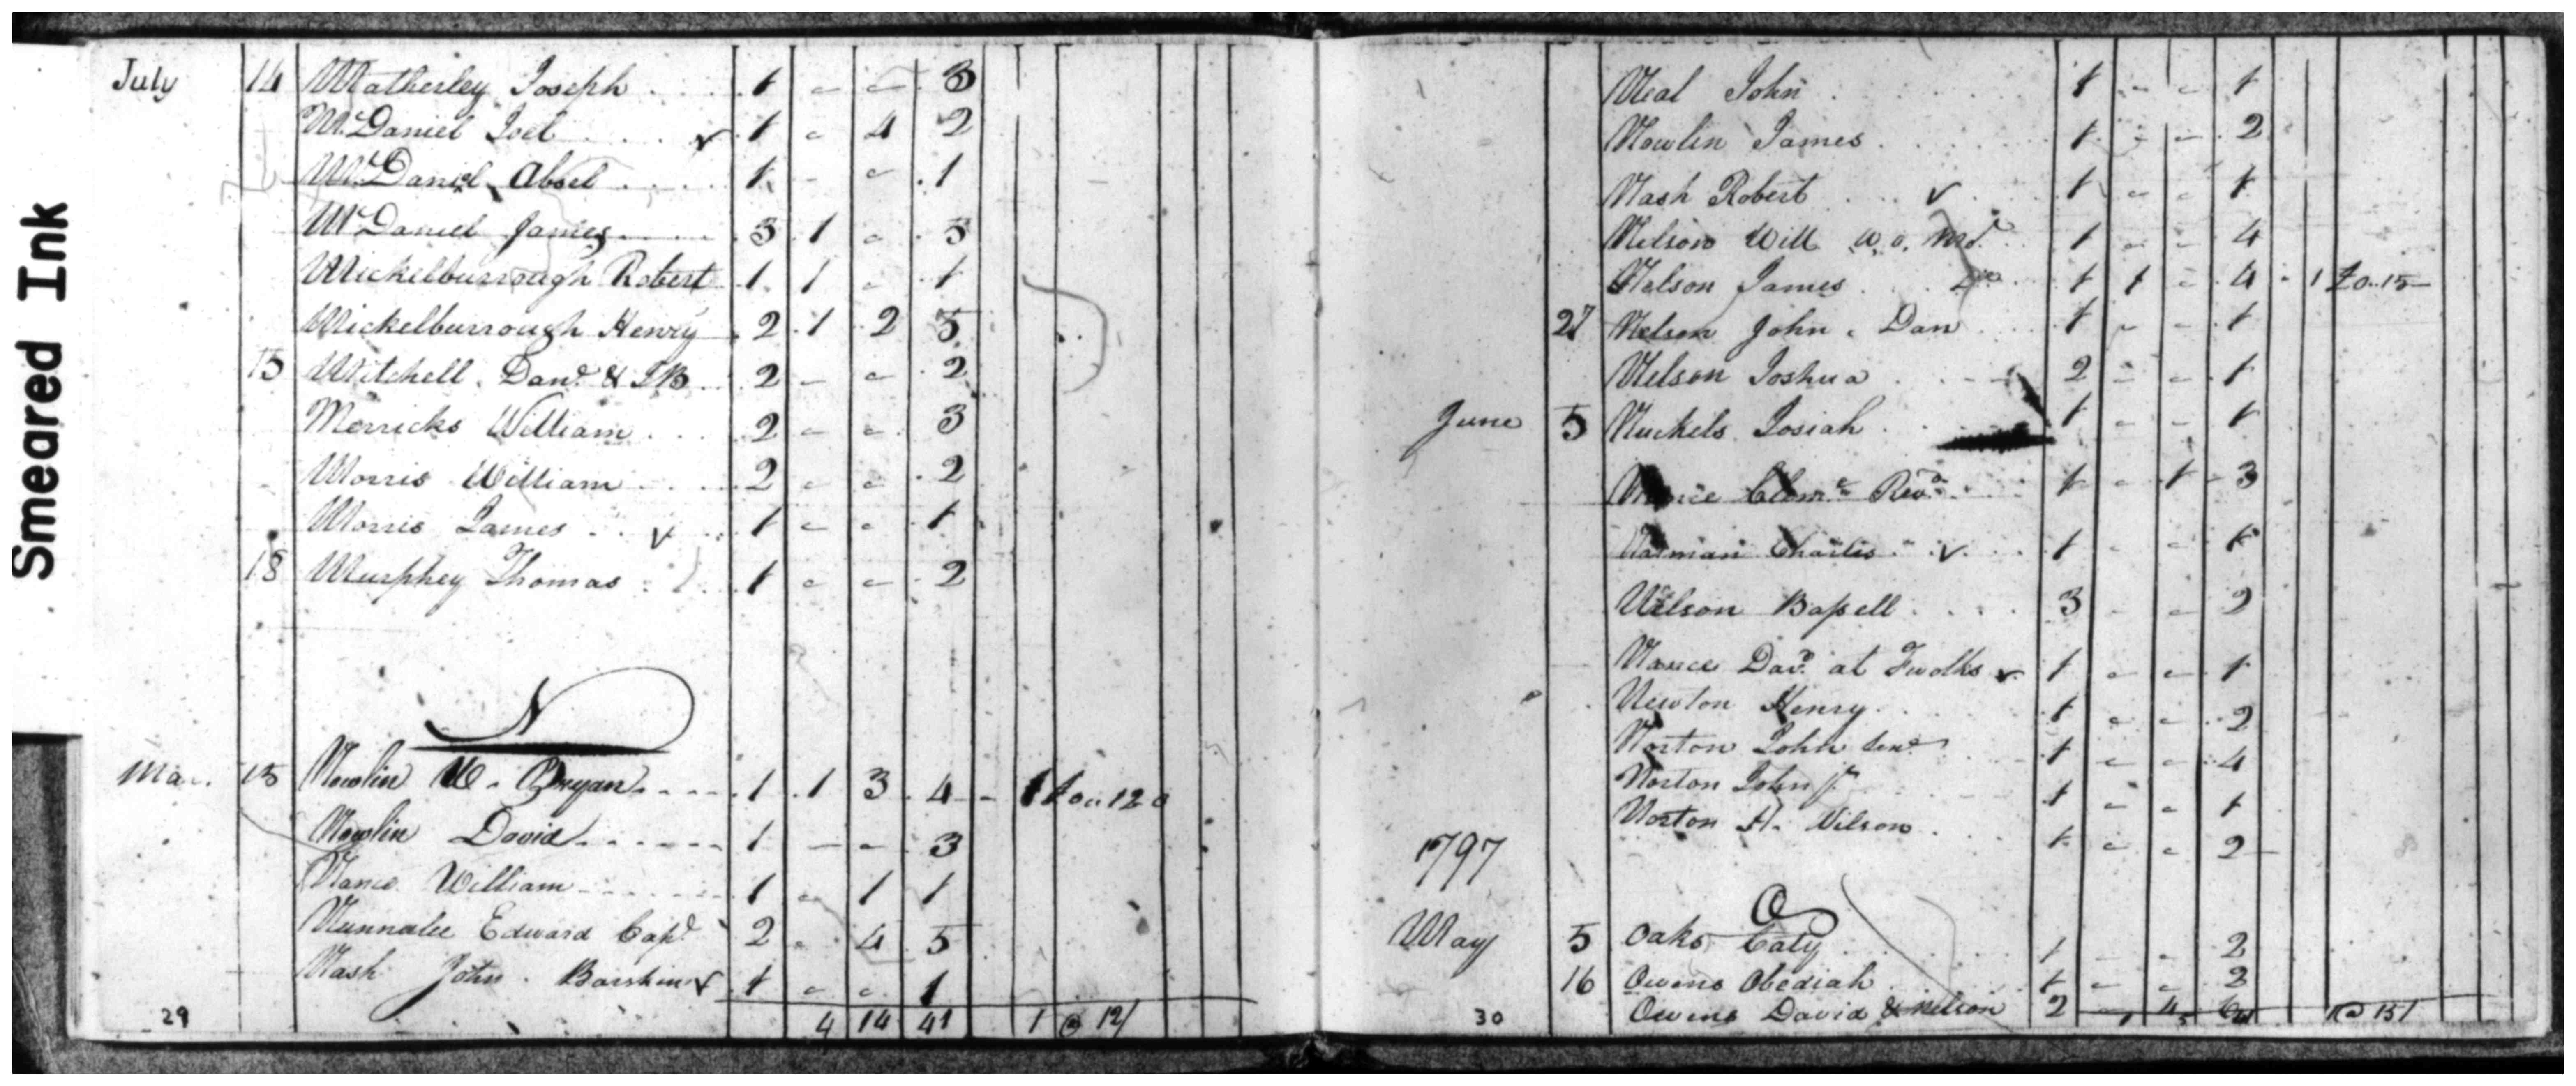 Smeared Ink
July 14 Matherley Joseph 1 - - 3
McDaniel Joel v 1 - 4 2
McDaniel Absel 1 - - 1
McDaniel James 3 1 - 3
Mickelburrough Robert 1 1 - 1
Mickelburrough Henry 2 1 2 5
15 Mitchell Dand & 2 - - 2
Merricks William 2 - - 3
Morris William 2 - - 2
Morris James v 1 - - 1
18 Murphey Thomas 1 - - 2
N
Mar. 15 Nowlin Bryan 1 1 3 4 - 1 12
Nowlin David 1 - - 3
Nance William 1 - 1 1
Nunnalee Edward Capt 2 - 4 5
Nash John v 1 - - 1
29 4 14 41 1 @ 12/
Neal John 1 - - 1
Nowlin James 1 - - 2
Nash Robert v 1 - - 1
Nelson Will 1 - - 4
Nelson James Do 1 1 - 4 - 1 15
27 Nelson John Dan 1 - - 1
Nelson Joshua 2 - - 1
June 5 Nuckels Josiah 1 - - 1
Nance Clemt Revd 1 - 1 3
Norman Charles v 1 - - 1
Nelson Bassell 3 - - 2
Nance Davd at v 1 - - 1
Newton Henry 1 - - 2
Norton John Senr 1 - - 4
Norton John Jr 1 - - 1
Norton H. Nilson 1 - - 2
1797
O
May 5 Oaks Caty 1 - - 2
16 Owens Obediah 1 - - 2
Owens David & Nelson 2
30 1@15/